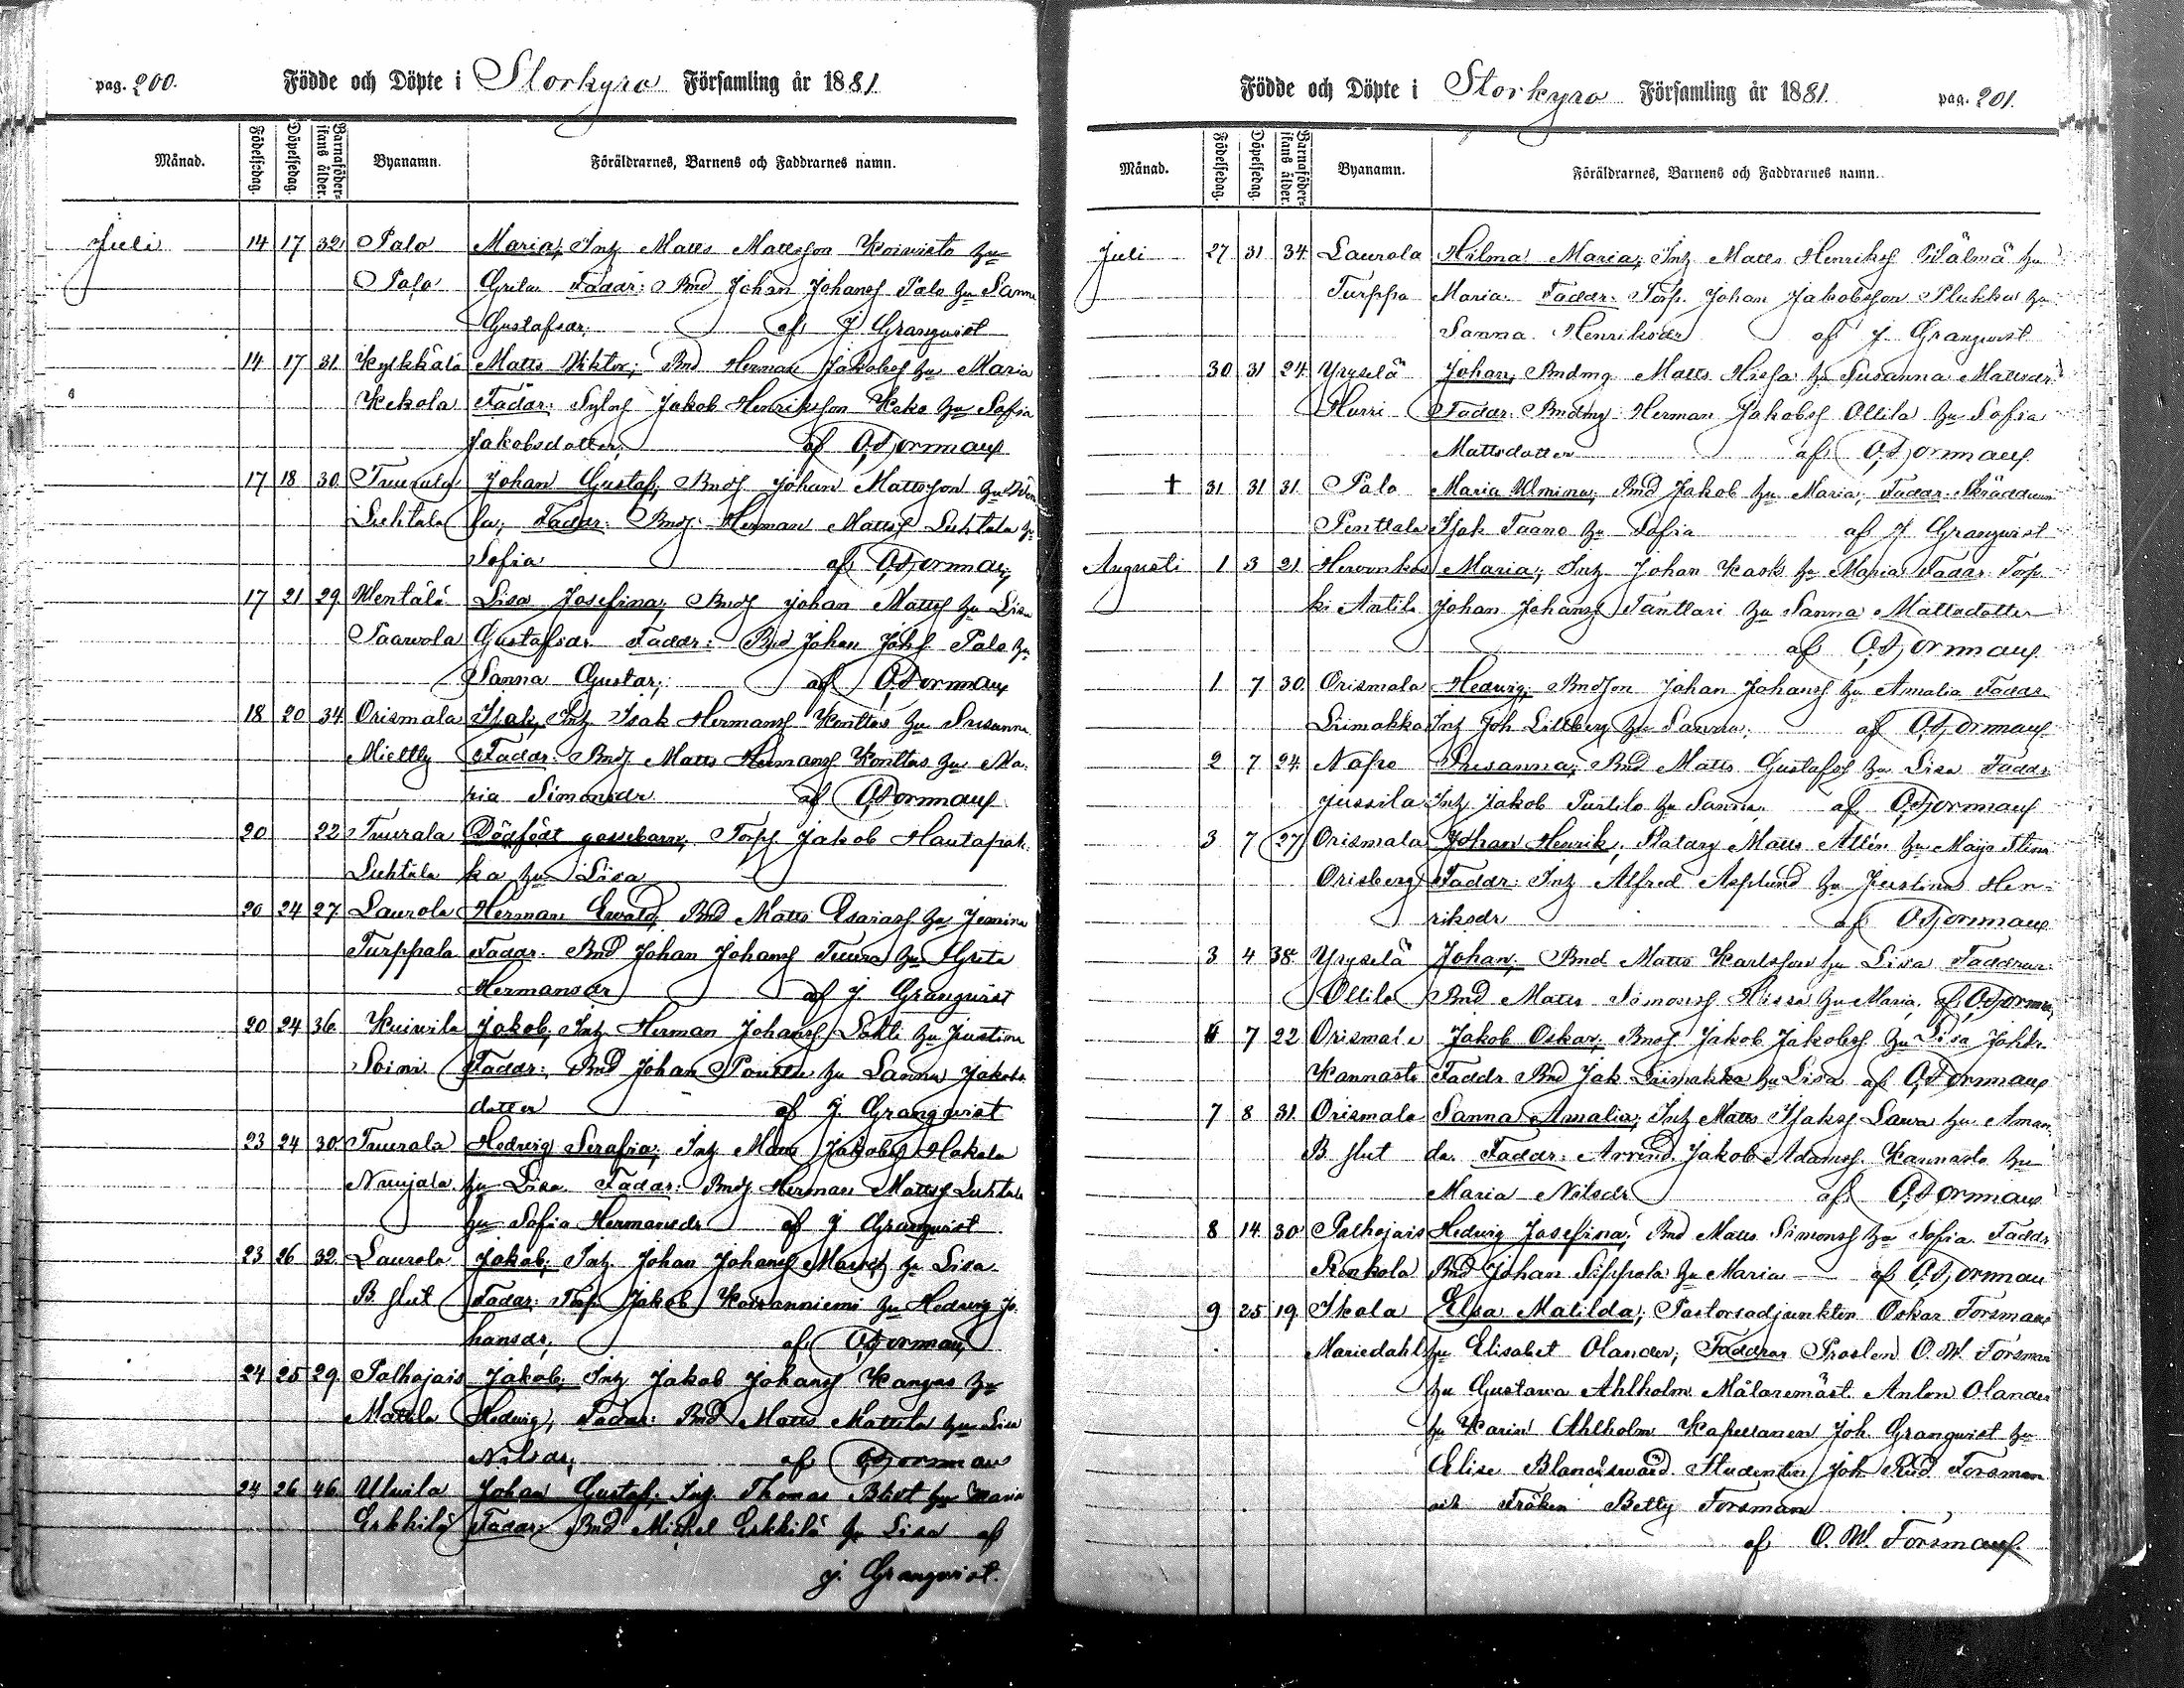 pag. 200. Födde och Döpte i Storkyro Församling år 1881.
Månad. Födelsedag. Döpelsedag. Barnaföderskans ålder. Byanamn. Föräldrarnes, Barnens och Faddrarnes namn.
Juli 14 17 32 Palo Maria; Inh Matts Mattsson Koivisto hu
Palo Greta. Faddr: Bnd Johan Johanss Palo hu Sanna
Gustafsdr. af J Granqvist
14 17 31 Kylkkälä Matts Viktor; Bnd Herman Jakobss hu Maria
Kekola Faddr: Sytng Jakob Henriksson Keko hu Sofia
Jakobsdotter; af O, Forsman
17 18 30 Tuurala Johan Gustaf; Bndss Johan Mattsson hu
Luhtala Faddr: Bndss Herman Mattss Luhtala hu
Sofia af O, Forsman
17 21 29 Lisa Josefina; Bndss Johan Mattss hu Lisa
Gustafsdr. Faddr: Bnd Johan Johss Palo hu
Sanna Gustdr; af O, Forsman
18 20 34 Orismala Isak; Inh Isak Hermanss Konttas hu Susanna
Mietty Faddr: Bndss Matts Hermanss Konttas hu Ma-
ria Simonsdr af O, Forsman
20 22 Tuurala Dödfödt gossebarn; Torp. Jakob Hautapak-
Luhtala ka hu Lisa
20 24 27 Laurola Herman Evald; Bnd Matts Esaiass hu
Turppala Faddr. Bnd Johan Johanss Tuura hu Greta
Hermansdr af J. Granqvist
20 24 36 Kuivila Jakob; Inh Herman Johanss Lahti hu Justina
Soini Faddr: Bnd Johan hu Sanna Jakobs
dotter af J. Granqvist
23 24 30 Tuurala Hedvig Serafia; Inh Matts Jakobss Hakala
Nuujala hu Lisa. Faddr: Bndss Herman Mattss Luhtala
hu Sofia Hermansdr af J Granqvist
23 26 32 Laurola Jakob; Inh Johan Johanss hu Lisa
B. slut Faddr; Torp. Jakob Koivanniemi hu Hedvig Jo-
hansdr; af O, Forsman
24 25 29 Palhojais Jakob; Inh Jakob Johanss Kangas hu
Mattila Hedvig; Faddr: Bnd Matts Mattila hu Lisa
Nilsdr; af O, Forsman
24 26 46 Ulvila Johan Gustaf; Inh Thomas hu Maria
Erkkilä Faddr: Bnd Mickel Erkkilä hu Lisa af
J. Granqvist.
Födde och Döpte i Storkyro Församling år 1881. pag. 201.
Månad. Födelsedag. Döpelsedag. Barnaföderskans ålder. Byanamn. Föräldrarnes, Barnens och Faddrarnes namn.
Juli 27 31 34 Laurola Hilma Maria; Inh Matts Henrikss hu
Turppa Maria. Faddr: Torp. Johan Jakobsson Plukka hu
Sanna Henriksdr af J. Granqvist
30 31 24 Yryselä Johan; Bndmg Matts Hissa hu Susanna Mattsdr
Hurri Faddr. Bndmg Herman Jakobss Ollila hu Sofia
Mattsdotter af O, Forsman
† 31 31 31 Palo Maria Ulmina; Bnd Jakob hu Maria; Faddr: Skräddaren
Penttala Isak Taano hu Sofia af J Granqvist
Augusti 1 3 21 Hevonkos Maria; Inh Johan Kask hu Maria Faddr Torp
ki Antila Johan Johanss Tanttari hu Sanna Mattsdotter
af O, Forsman
1 7 30 Orismala Hedvig; Bndson Johan Johanss hu Amalia Faddr
Liimakka Inh Joh Lillberg hu Sanna; af O, Forsman
2 7 24 Napo Susanna; Bnd Matts Gustafss hu Lisa Faddr
Jussila Inh Jakob Purtilo hu Sanna; af O, Forsman
3 7 27 Orismala Johan Henrik; Statdrg Matts Allén hu Maja Stina
Orisberg Faddr: Inh Alfred Asplund hu Justina Hen-
riksdr af O, Forsman
3 4 38 Yryselä Johan; Bnd Matts Karlsson hu Lisa Faddrar:
Ollila Bnd Matts Simonss Hissa hu Maria, af O, Forsman
7 22 Orismala Jakob Oskar; Bndss Jakob Jakobss hu Lisa Johdr.
Kannasto Faddr Bnd Jak Liimakka hu Lisa af O, Forsman
7 8 31 Orismala Sanna Amalia; Inh Matts Isakss Laura hu Aman-
B slut da. Faddr: Arrend. Jakob Adamss. Kannasto hu
Maria Nilsdr af O, Forsman
8 14 30 Palhojais Hedvig Josefina; Bnd Matts Simonss hu Sofia. Faddr
Renkola Bnd Johan Sippola hu Maria af O, Forsman
9 25 19 Ikola Elsa Matilda; Pastorsadjunkten Oskar Forsman
Mariedahl hu Elisabet Olander; Faddrar Prosten O. W. Forsman
hu Gustava Ahlholm Målaremäst. Anton Olander
hu Karin Ahlholm Kapellanen Joh. Granqvist hu
Elise Studenten Joh Rud. Forsman
och Fröken Betty Forsman
af O. W. Forsman.